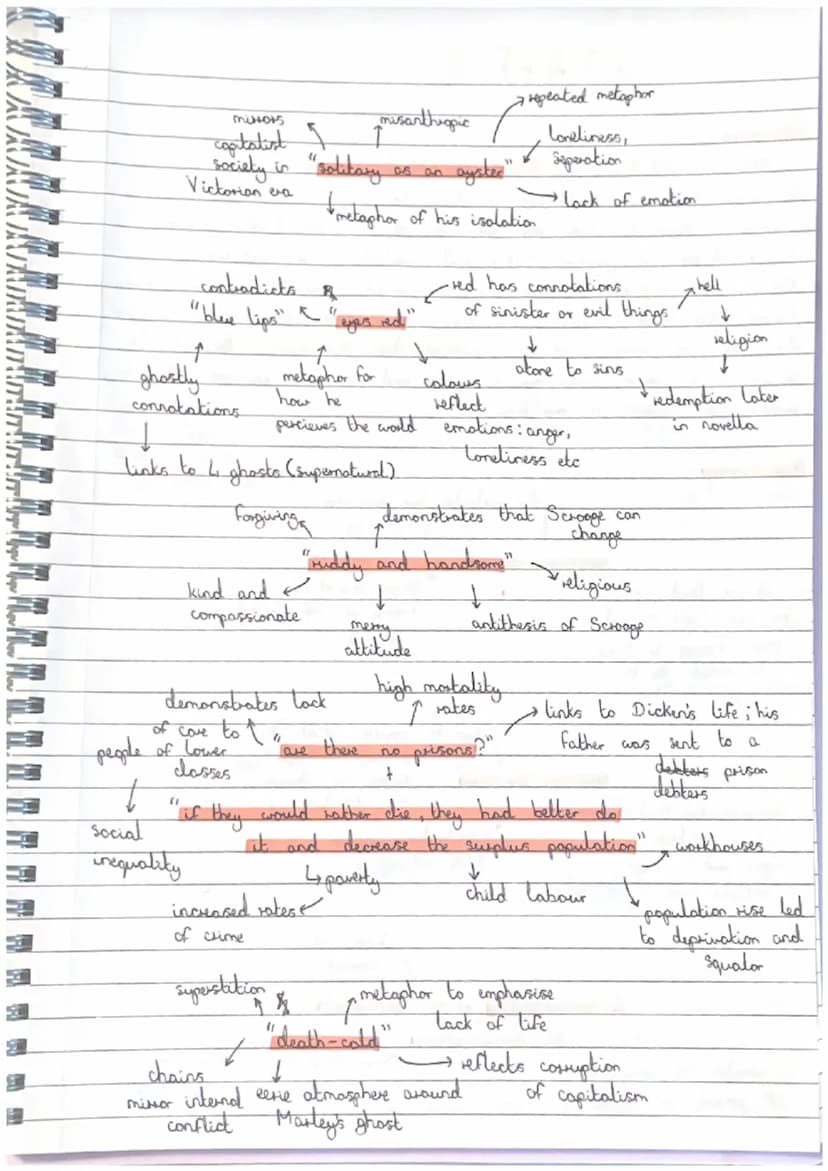 repeated metaphor
mirrors
capitalist
society in
Victorian era
misanthropic
loneliness,
seperation
"solitary as an oyster"
lack of emotion
metaphor of his isolation
contradicts
"blue lips"
"eyes red"
red has connotations
of sinister or evil things
hell
religion
redemption later
in novella
atone to sins
ghostly
connotations
links to 4 ghosts (supernatural)
metaphor for
how he
percieves the world
colours
reflect
emotions: anger,
loneliness etc
forgiving
demonstrates that Scrooge can
change
"ruddy and handsome"
religious
kind and
compassionate
merry
attitude
antithesis of Scrooge
high mortality
rates
demonstrates lack
of care to
people of lower
classes
"are there no prisons?"
links to Dicken's life; his
father was sent to a
debters prison
debters
+
social
inequality
"if they would rather die, they had better do
it and decrease the surplus population"
workhouses
poverty
increased rates
of crime
child labour
population rise led
to deprivation and
squalor
superstition
metaphor to emphasise
lack of life
"death-cold"
reflects corruption
of capitalism
chains
mirror internal
conflict
eerie atmosphere around
Marley's ghost